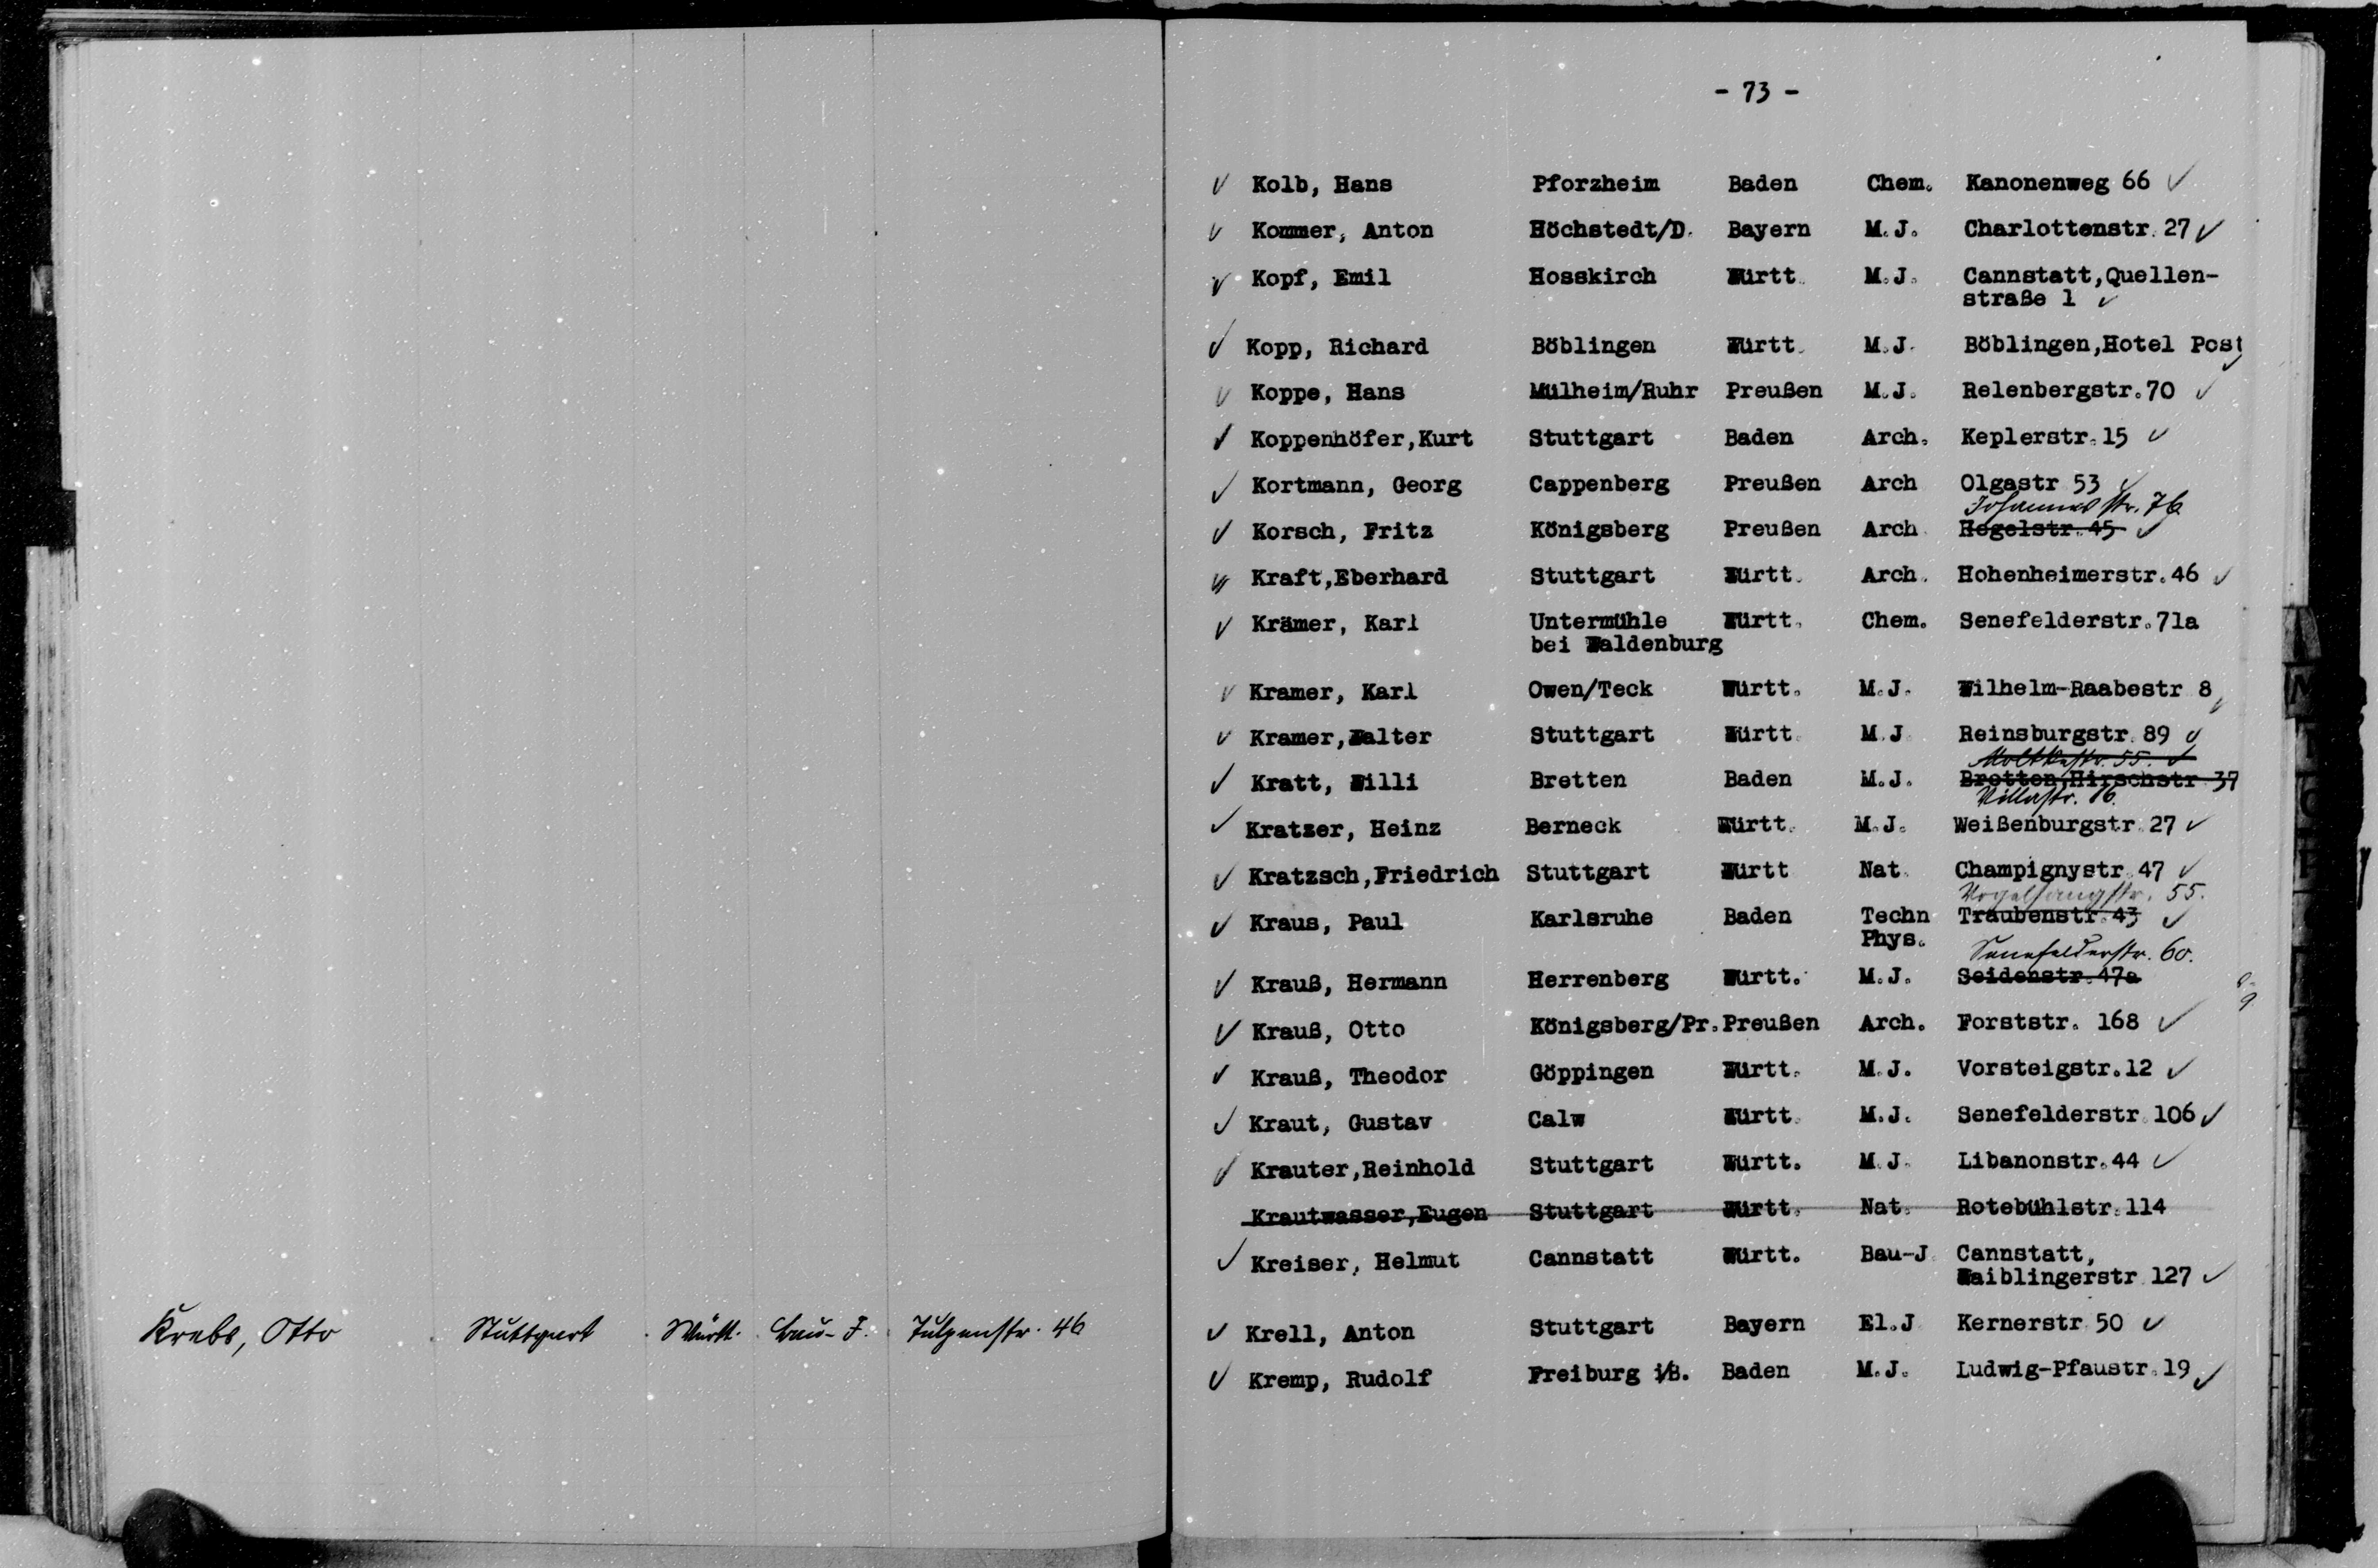 Krebs, Otto Stuttgart Württ. Bau-J. Tulpenstr. 46
- 73 -
Kolb, Hans Pforzheim Baden Chem. Kanonenweg 66
Kommer, Anton Höchstedt/D. Bayern M.J. Charlottenstr. 27
Kopf, Emil Hosskirch Württ. M.J. Cannstatt,Quellen-
straße 1
Kopp, Richard Böblingen Württ. M.J. Böblingen,Hotel Post
Koppe, Hans Mülheim/Ruhr Preußen M.J. Relenbergstr.70
Koppenhöfer,Kurt Stuttgart Baden Arch. Keplerstr.15
Kortmann, Georg Cappenberg Preußen Arch Olgastr 53
Johannesstr. 76
Korsch, Fritz Königsberg Preußen Arch. Hegelstr.45
Kraft,Eberhard Stuttgart Württ. Arch. Hohenheimerstr.46
Krämer, Karl Untermühle Württ. Chem. Senefelderstr.71a
bei Waldenburg
Kramer, Karl Owen/Teck Württ. M.J. Wilhelm-Raabestr 8
Kramer,Walter Stuttgart Württ. M.J Reinsburgstr.89
Moltkestr. 55.
Kratt, Willi Bretten Baden M.J. Bretten,Hirschstr 37
Villastr. 16.
Kratzer, Heinz Berneck Württ. M.J. Weißenburgstr.27
Kratzsch,Friedrich Stuttgart Württ Nat. Champignystr.47
Vogelsangstr. 55.
Kraus, Paul Karlsruhe Baden Techn Traubenstr.43
Phys.
Senefelderstr. 60.
Krauß, Hermann Herrenberg Württ. M.J. Seidenstr.47a
Krauß, Otto Königsberg/Pr.Preußen Arch. Forststr. 168
Krauß, Theodor Göppingen Württ. M.J. Vorsteigstr.12
Kraut, Gustav Calw Württ. M.J. Senefelderstr.106
Krauter,Reinhold Stuttgart Württ. M.J. Libanonstr.44
Krautwasser,Eugen Stuttgart Württ. Nat. Rotebühlstr.114
Kreiser, Helmut Cannstatt Württ. Bau-J. Cannstatt,
Waiblingerstr 127
Krell, Anton Stuttgart Bayern El.J Kernerstr 50
Kremp, Rudolf Freiburg i/B. Baden M.J. Ludwig-Pfaustr.19